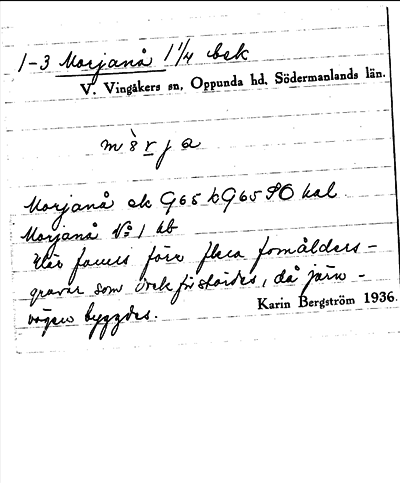 1-3 Morjanå 1 1/4 bsk
V. Vingåkers sn, Oppunda hd, Södermanlands län.
Morjanå ek G65 b G65 SO kal
Morjanå No 1 kb
Här fanns förr flera fornålders-
gravar som förstördes, då järn-
vägen byggdes.
Karin Bergström 1936.